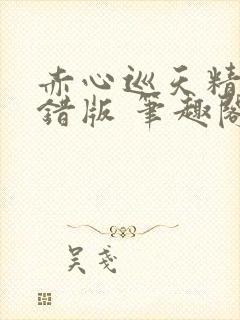 赤心巡天精
錯版 筆趣閣
吴戔